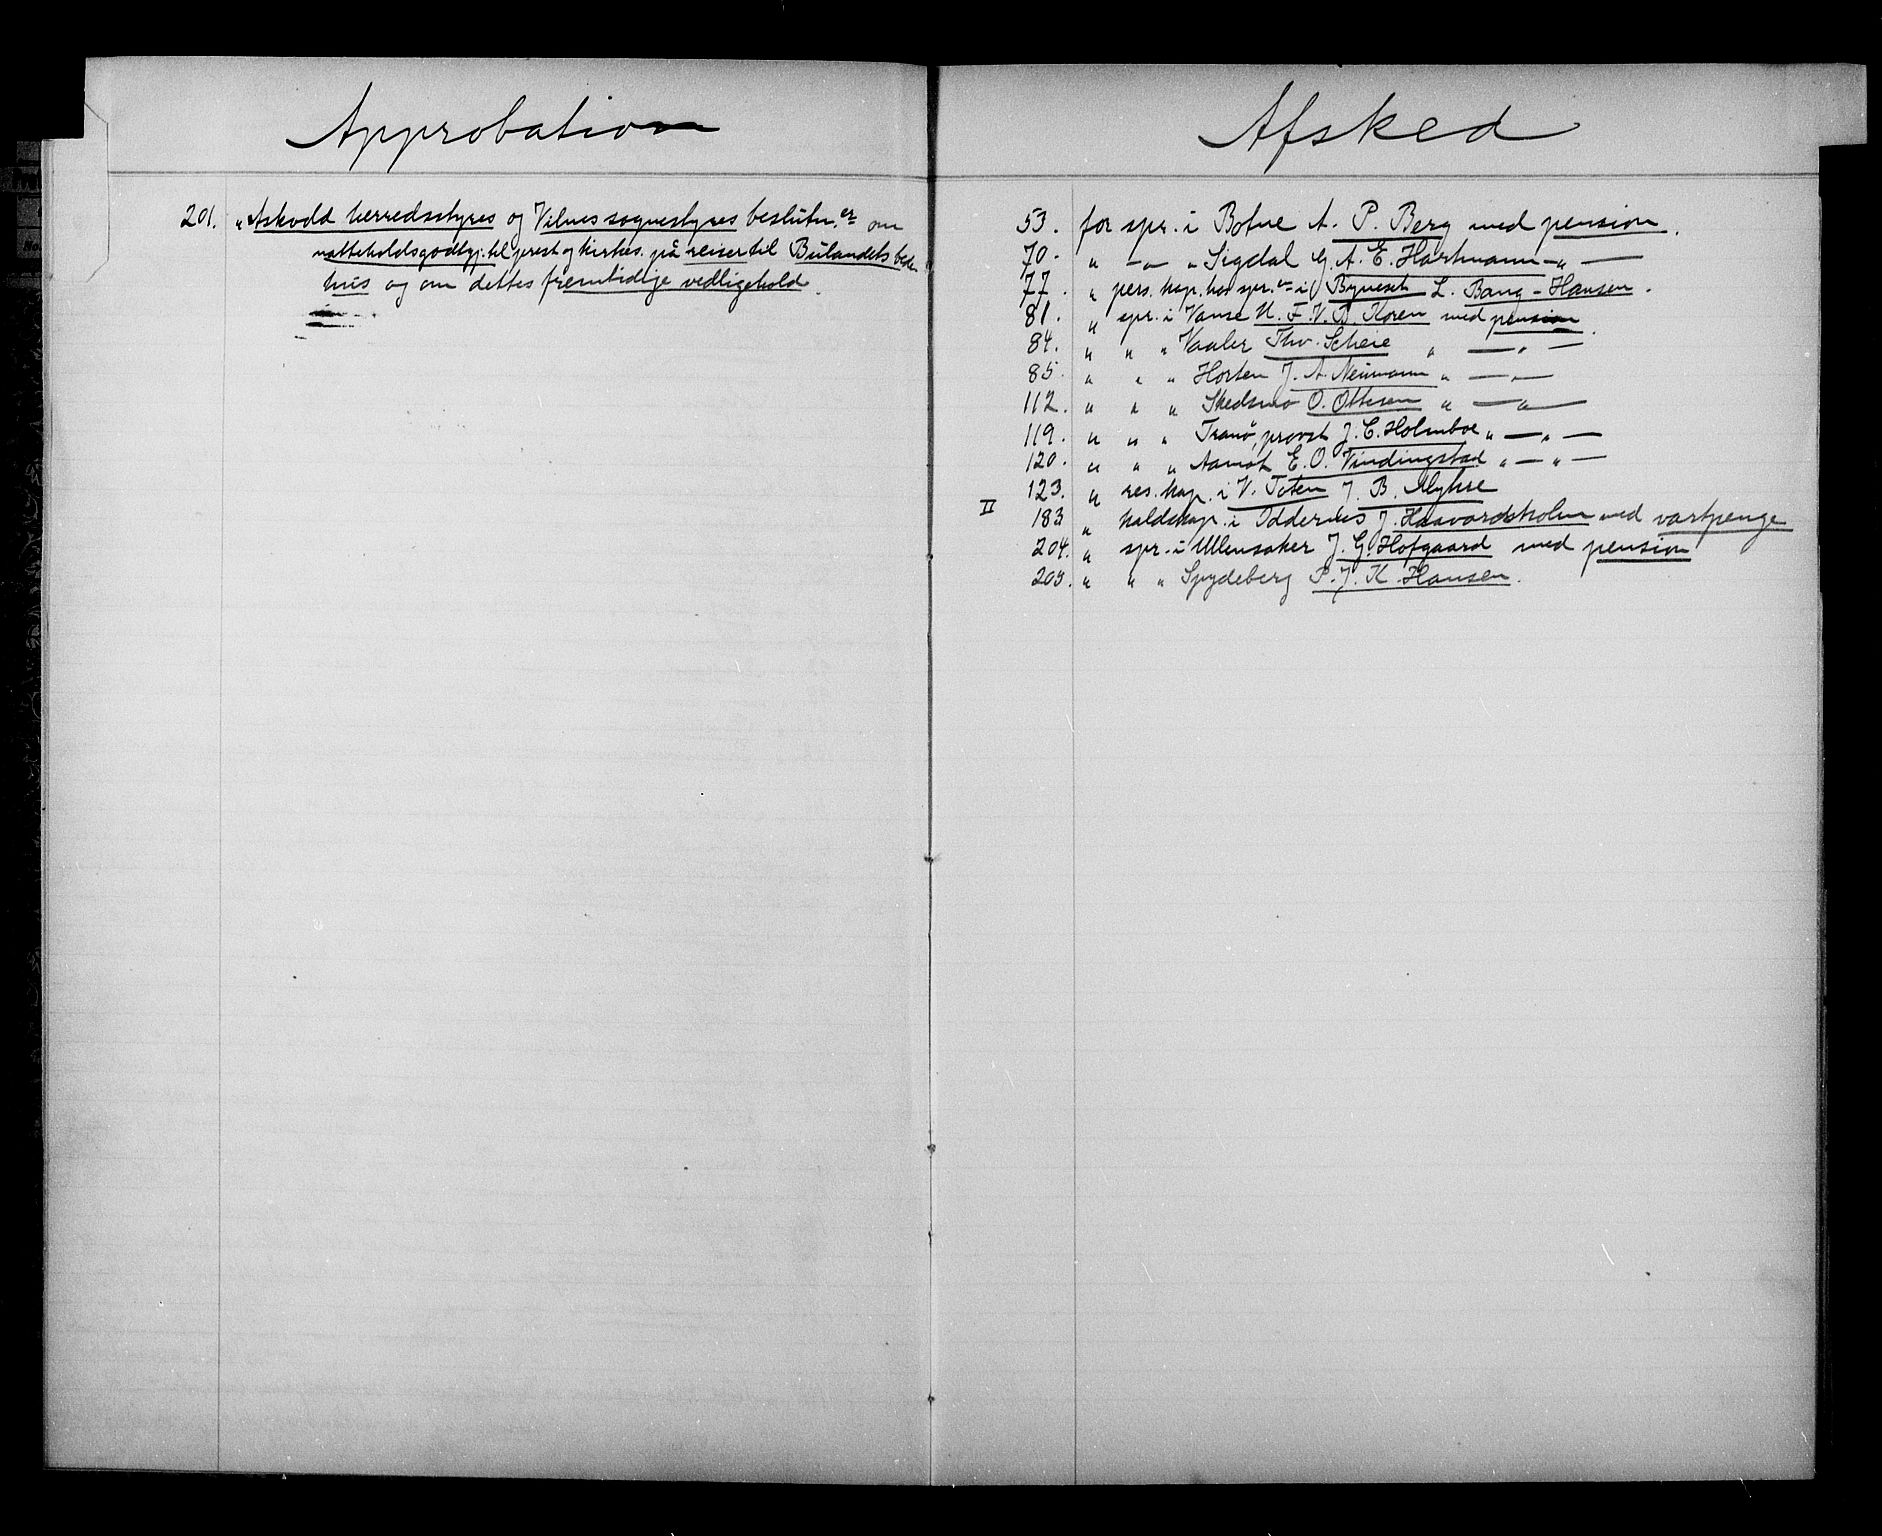 Approbation
201. " Askvold herredsstyres og Vilnes sognestyres beslutn.er om
natteholdsgodtgj. til prest og kirkes. på reiser til Bulandets bede
hus og om dettes fremtidige vedligehold.
Afsked
53. for spr. i Botne A. P. Berg med pension.
70. " — " — " Sigdal G. A. E. Hartmann — " —
77. " pers. kap. hos spr.en i Bynesset L. Bang-Hansen.
81. " spr. i Vanse U. F. V. B. Koren med pension.
84. " " " Vaaler Thv. Scheie " — " —
85. " " " Horten J. A. Neumann " — " —
112. " " " Skedsmo O. Ottesen " — " —
119. " " " Tranö, provst J. C. Holmboe " — " —
120. " " " Aamot E. O. Vindingstad " — " —
123. " res. kap. i V. Toten J. B. Myhre
II 183. " kaldskap. i Oddernes J. Haavardsholm med vartpenge
204. " spr. i Ullensaker J. G. Hofgaard med pension
205. " " " Spydeberg P. J. K. Hansen.